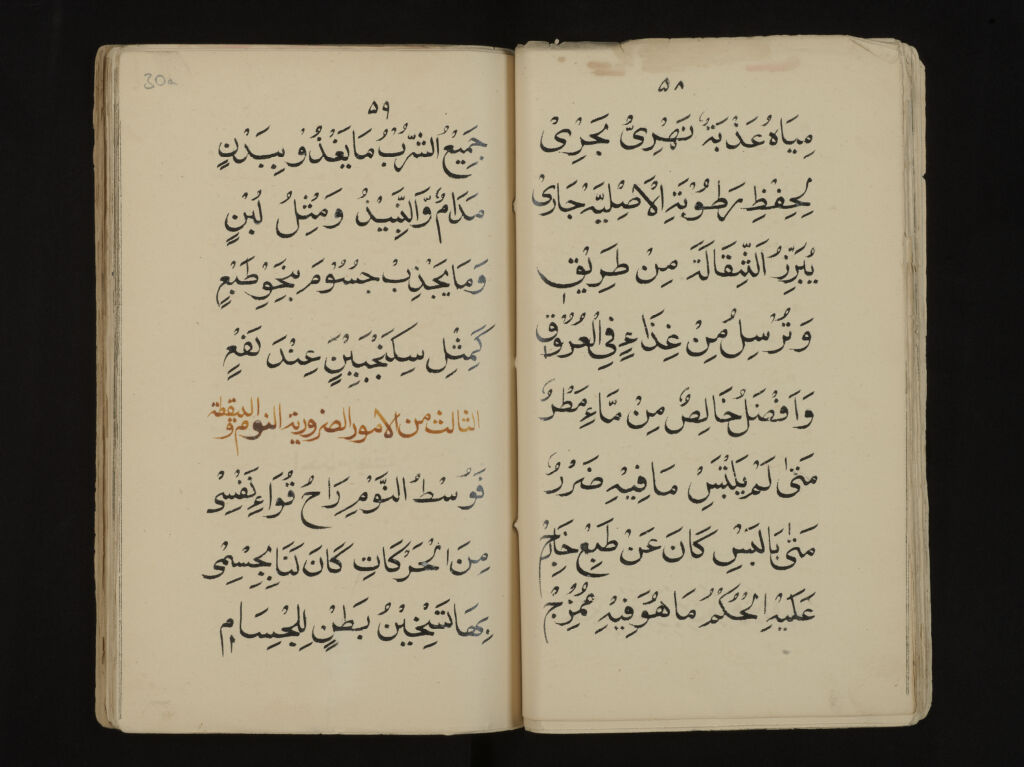 ٥٨
مِيَاهُ عَذْبَةُ نَهْرِىُّ بَجَرِىْ
لِحِفْظِ رَطُوْبَةِ الْاَصْلِيَّهْ جَارِىْ
يُبَرِّزُ الثِّقَالَةَ مِنْ طَرِيْقٍ
وَتُرْسِلُ مِنْ غِذَاءٍ فِى الْعُرُوْقِ
وَاَفْضَلُ خَالِصٌ مِنْ مَّاءِ مَطْرٌ
مَتٰى لَمْ يَلْتَبِسْ مَا فِيْهِ ضَرْرٌ
مَتٰى بَالَبَسِ كَانَ عَنْ طَبْعِ خَارِجْ
عَلَيْهِ الْحُكْمُ مَا هُوَ فِيْهِ مُمْزِجْ
30a
٥٩
جَمِيْعُ الشُّرْبُ مَا يَغْذُوْ بِبَدْنٍ
مَدَامٌ وَّالنَّبِيْذُ وَمِثْلُ لُبْنٍ
وَمَا يَجْذِبْ جُسُوْمَ بِنَحْوِ طَبْعٍ
كَمِثْلِ سِكَنْجَبِيْنٍ عِنْدَ نَفْعٍ
الثالث من الامور الضرورية النوم واليقظة
فَوُسْطُ النَّوْمِ رَاحُ قُوَاءِ نَفْسِىْ
مِنَ الْحَرَكَاتِ كَانَ لَنَا بِجِسْمِىْ
بِهَا تَسْخِيْنُ بَطْنٍ لِلْجِسَامِ